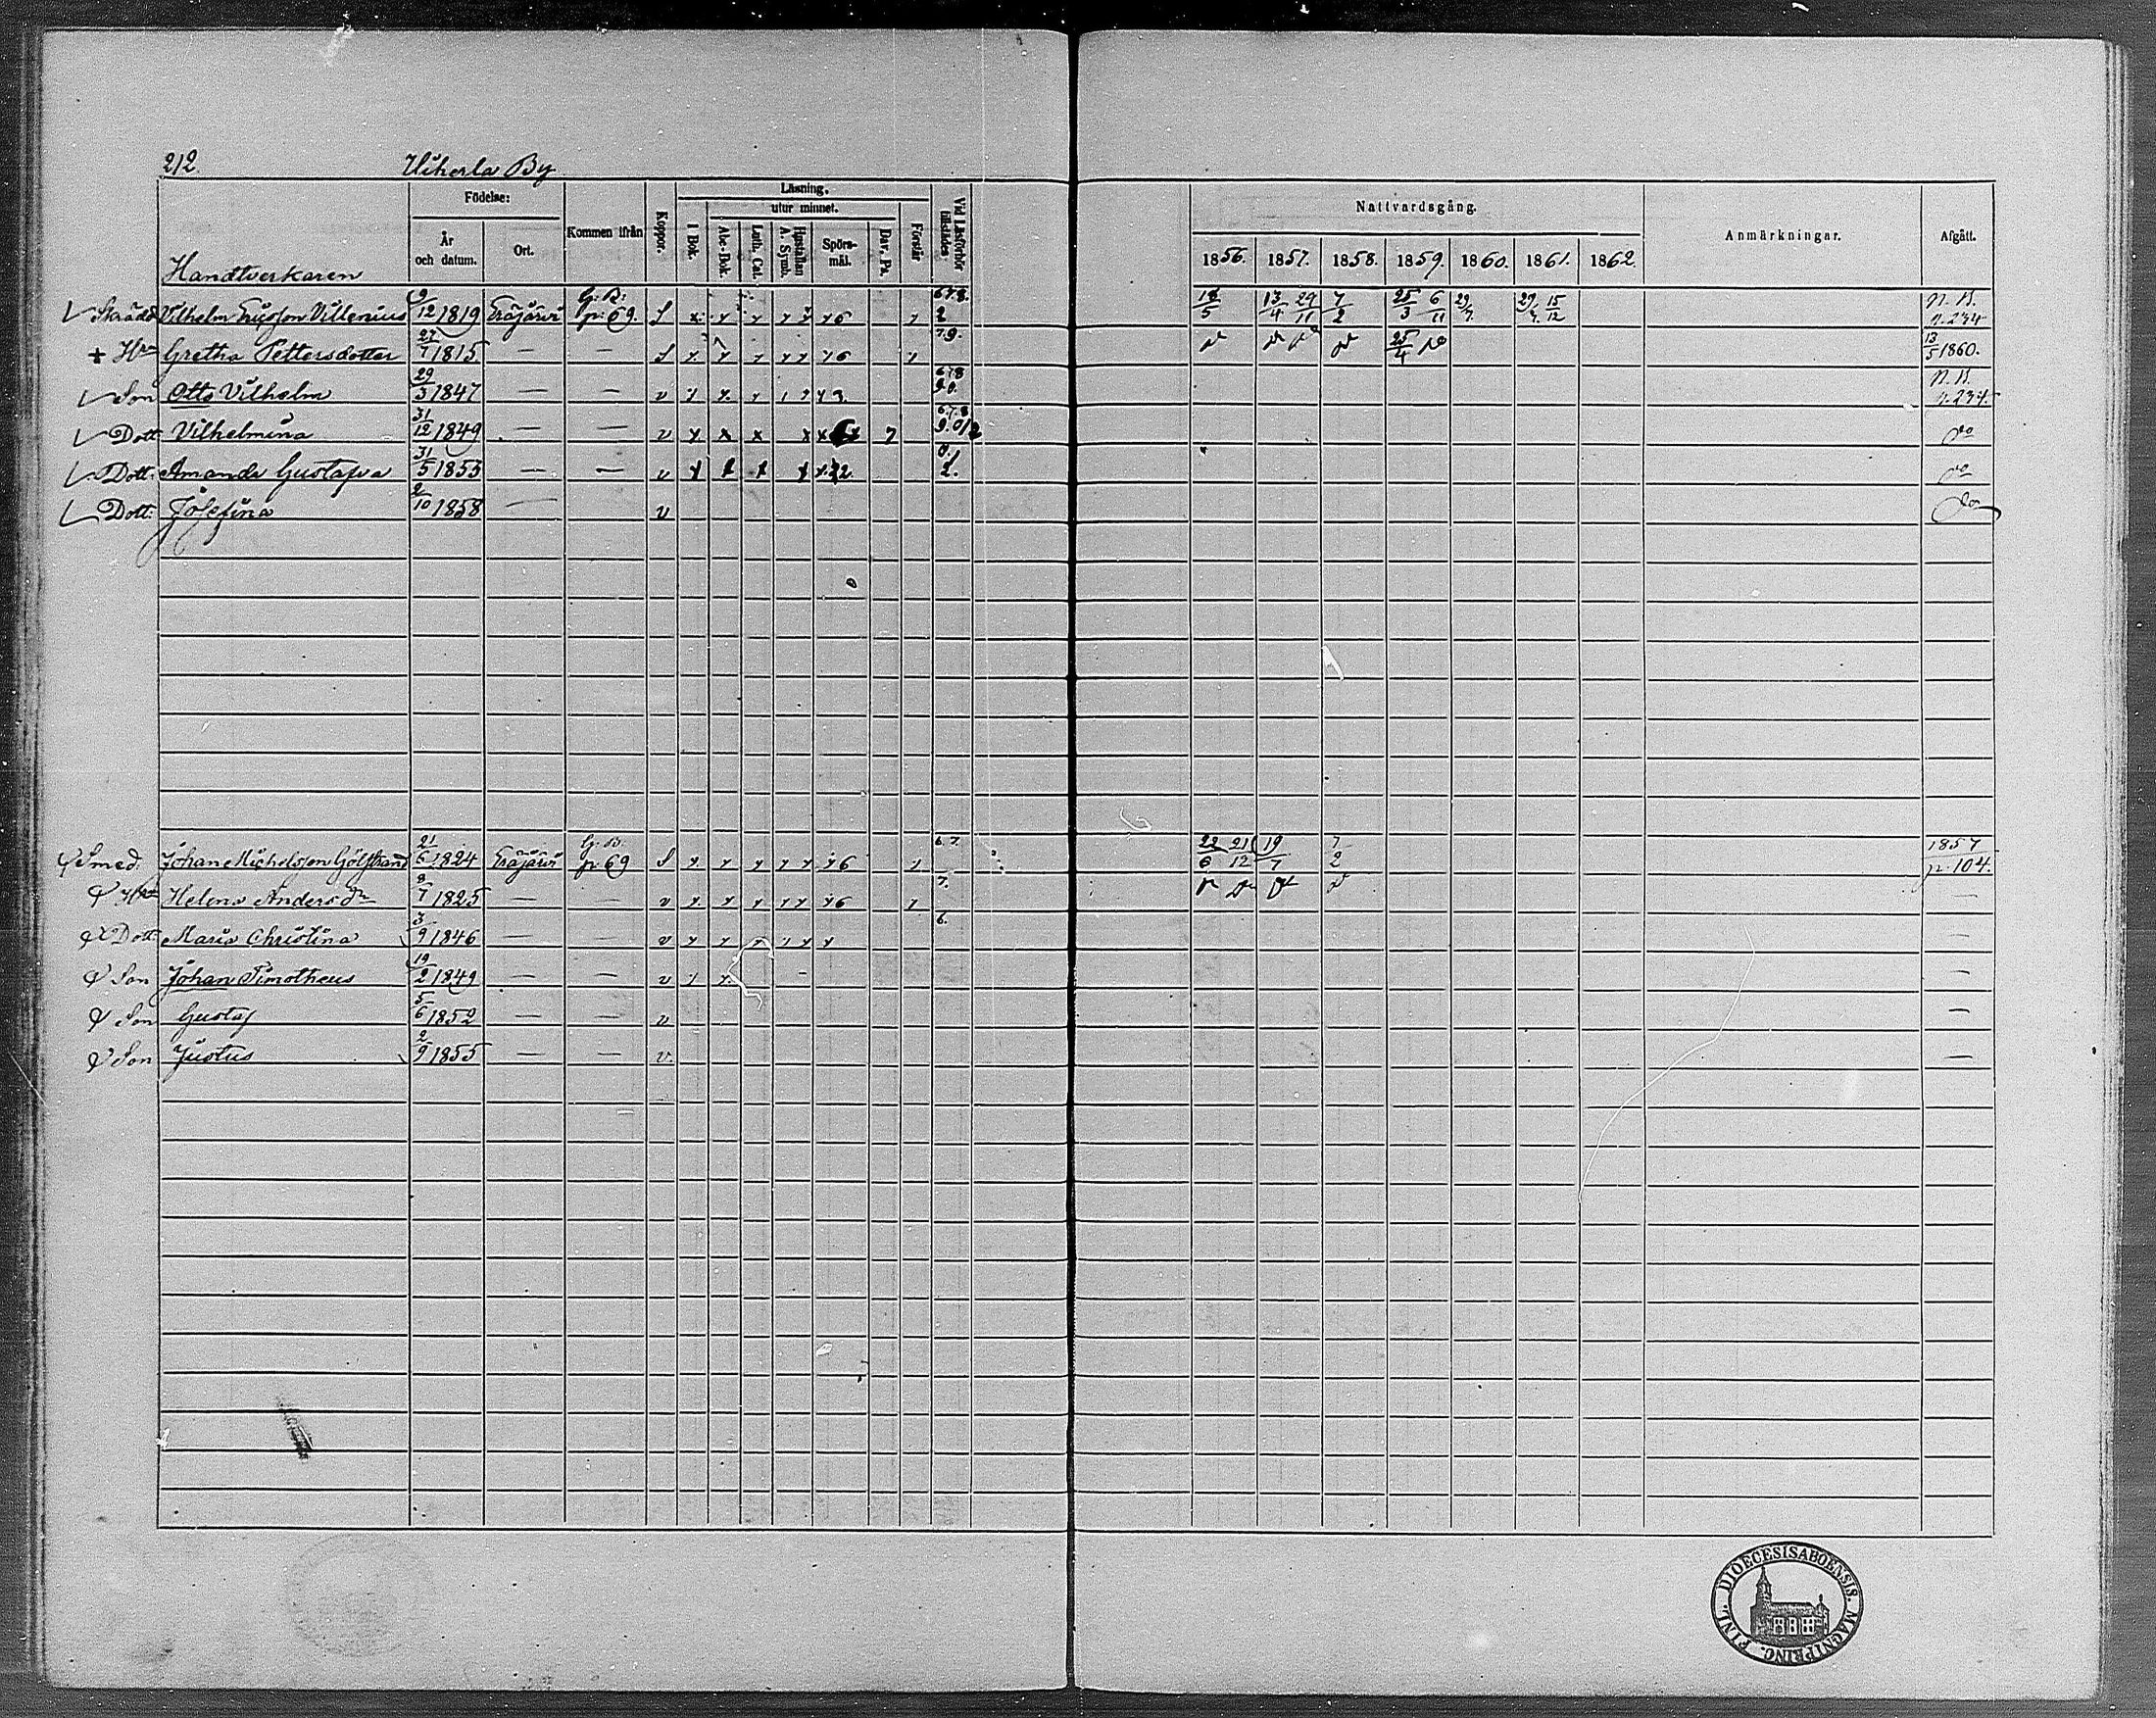 212. Uiherla By
Födelse: Läsning. Nattvardsgång.
utur minnet.
År och datum. Ort. Kommen ifrån Koppor. I Bok. Abc-Bok. Luth. Cat. A. Symb. Hustaflan Spörsmål. Dav. Ps. Förstår Vid Läsförhör tillstädes 1856. 1857. 1858. 1859. 1860. 1861. 1862. Anmärkningar. Afgått.
Handtverkaren
Skrädd Vilhelm Ericsson Villenius 9/12 1819 Eräjärvi G. B. p. 69. S x 6 678. 2 18/5 13/4 29/11 7/2 25/3 6/11 29/7. 15/12 N. B. p. 234
+ Hu Gretha Pettersdotter 27/7 1815 — — S 6 79. 25/4 13/5 1860.
Son Otto Vilhelm 29/3 1847 — — v 678 9.0. N. B. p. 234.
Dott Vilhelmina 31/12 1849 — — v x x x 6.7.8 9.0/2 do
Dott. Amanda Gustafva 31/5 1853 — — v x x x 2. 0./ 2. do
Dott: Josefina 2/10 1858 — v do
Smed. Johan Michelsson Gölfstrand 21/6 1824 Eräjärvi G. B. p. 69 S 6 6.7. 22/6 21/12 19/7 7/2 1857 p. 104.
Hu Helena Anders dr 8/7 1825 — — v 6 7. —
Dott: Maria Christina 3/9 1846 — — v 6. —
Son Johan Timotheus 19/2 1849 — — v —
Son Gustaf 5/6 1852 — — v —
Son Justus 2/9 1855 — — v. —
DIOECESIS ABOENSIS. MAGNI PRINC. FINL.